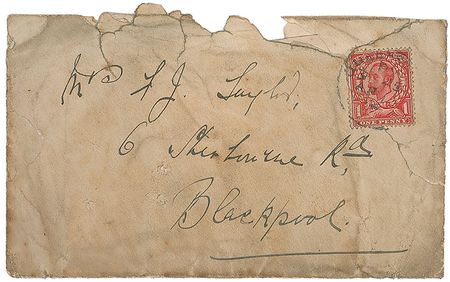 Mrs F J. Taylor,
6 Sherbourne Rd,
Blackpool.
1 1
ONE PENNY